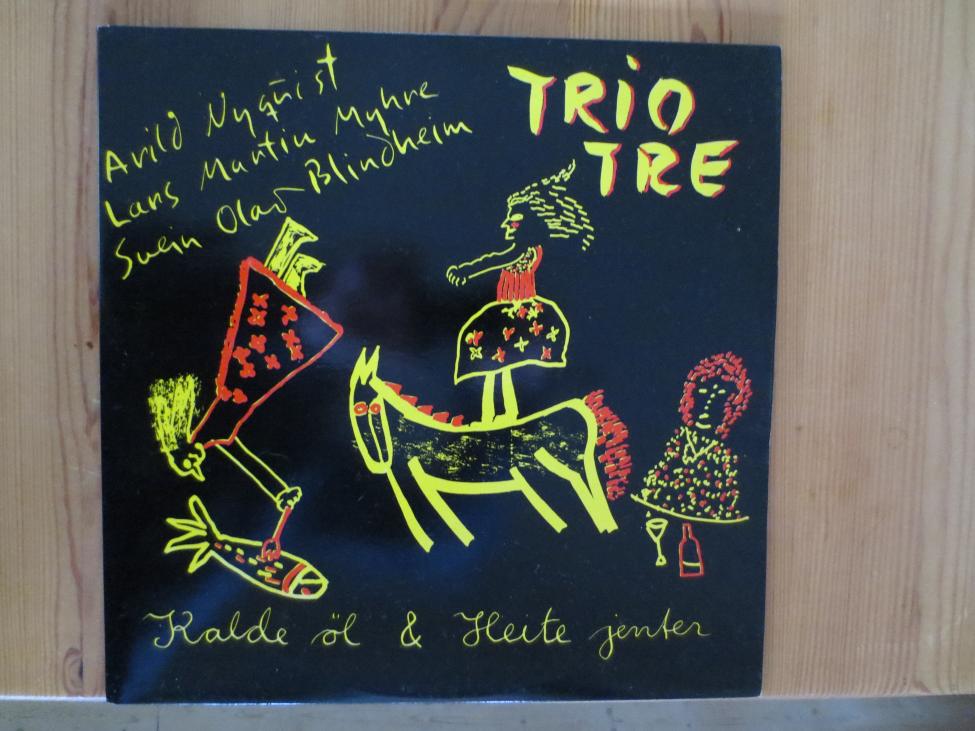 Arild Nyquist
Lars Martin Myhre
Svein Olav Blindheim
TRiO
TRE
Kalde öl & Heite jenter